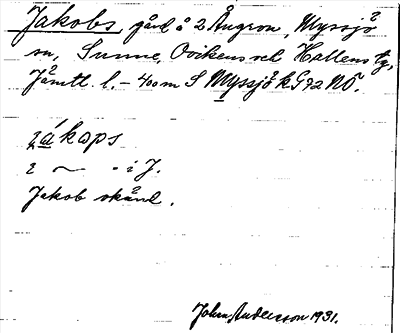 Jakobs, gård å 2 Ångron, Myssjö
sn, Sunne, Ovikens och Hallens tg,
Jämtl. l. - 400 m S Myssjö k G 92 NO.
jákops
i ~ - i J.
Jakob okänd.
John Andersson 1931.